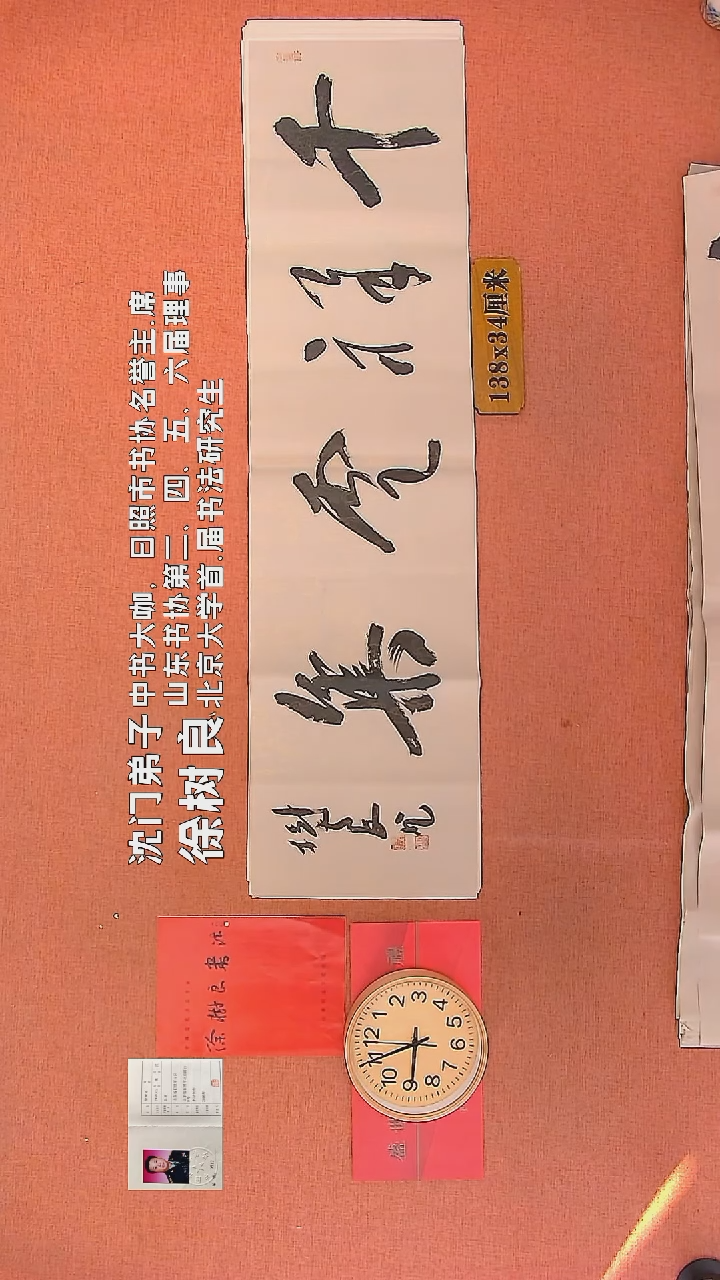 沈门弟子 中书大咖，日照市书协名誉主席
山东书协第三、四、五、六届理事
徐树良 北京大学首届书法研究生
千祥云集
138x34厘米
徐树良书法
12 1 2 3 4 5 6 7 8 9 10 11